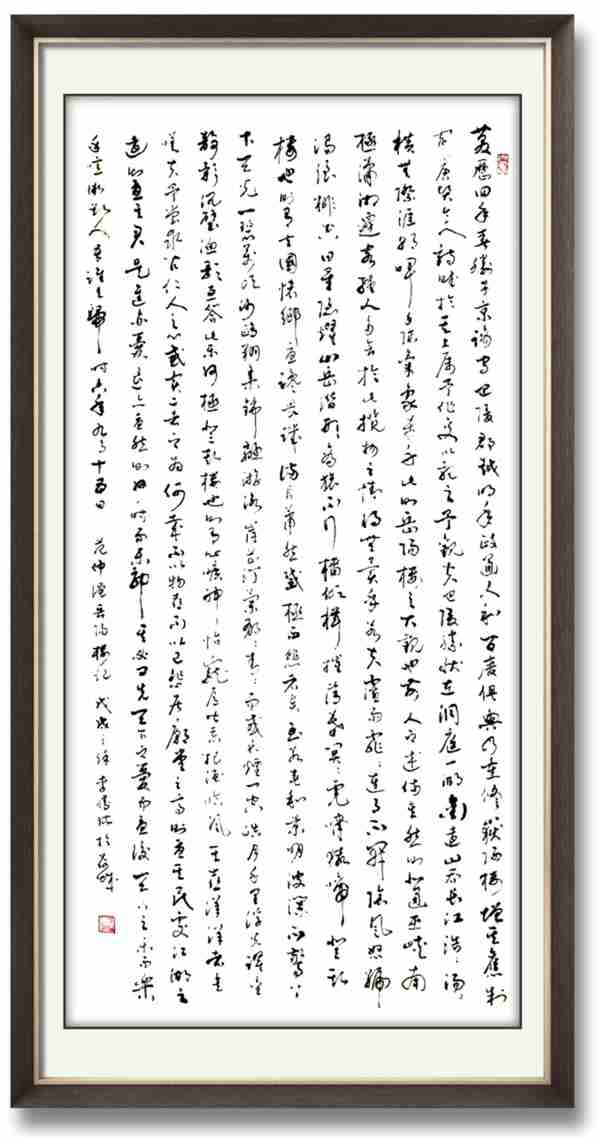 慶曆四年春滕子京謫守巴陵郡越明年政通人和百廢俱興乃重修岳陽樓增其舊制
刻唐賢今人詩賦於其上屬予作文以記之予觀夫巴陵勝狀在洞庭一湖銜遠山吞長江浩浩湯湯
橫無際涯朝暉夕陰氣象萬千此則岳陽樓之大觀也前人之述備矣然則北通巫峽南
極瀟湘遷客騷人多會於此覽物之情得無異乎若夫霪雨霏霏連月不開陰風怒號
濁浪排空日星隱曜山岳潛形商旅不行檣傾楫摧薄暮冥冥虎嘯猿啼登斯
樓也則有去國懷鄉憂讒畏譏滿目蕭然感極而悲者矣至若春和景明波瀾不驚上
下天光一碧萬頃沙鷗翔集錦鱗游泳岸芷汀蘭郁郁青青而或長煙一空皓月千里浮光躍金
靜影沉璧漁歌互答此樂何極登斯樓也則有心曠神怡寵辱皆忘把酒臨風其喜洋洋者矣
嗟夫予嘗求古仁人之心或異二者之為何哉不以物喜不以己悲居廟堂之高則憂其民處江湖之
遠則憂其君是進亦憂退亦憂然則何時而樂耶其必曰先天下之憂而憂後天下之樂而樂
乎噫微斯人吾誰與歸時六年九月十五日 范仲淹岳陽樓記 戊戌之秋 李